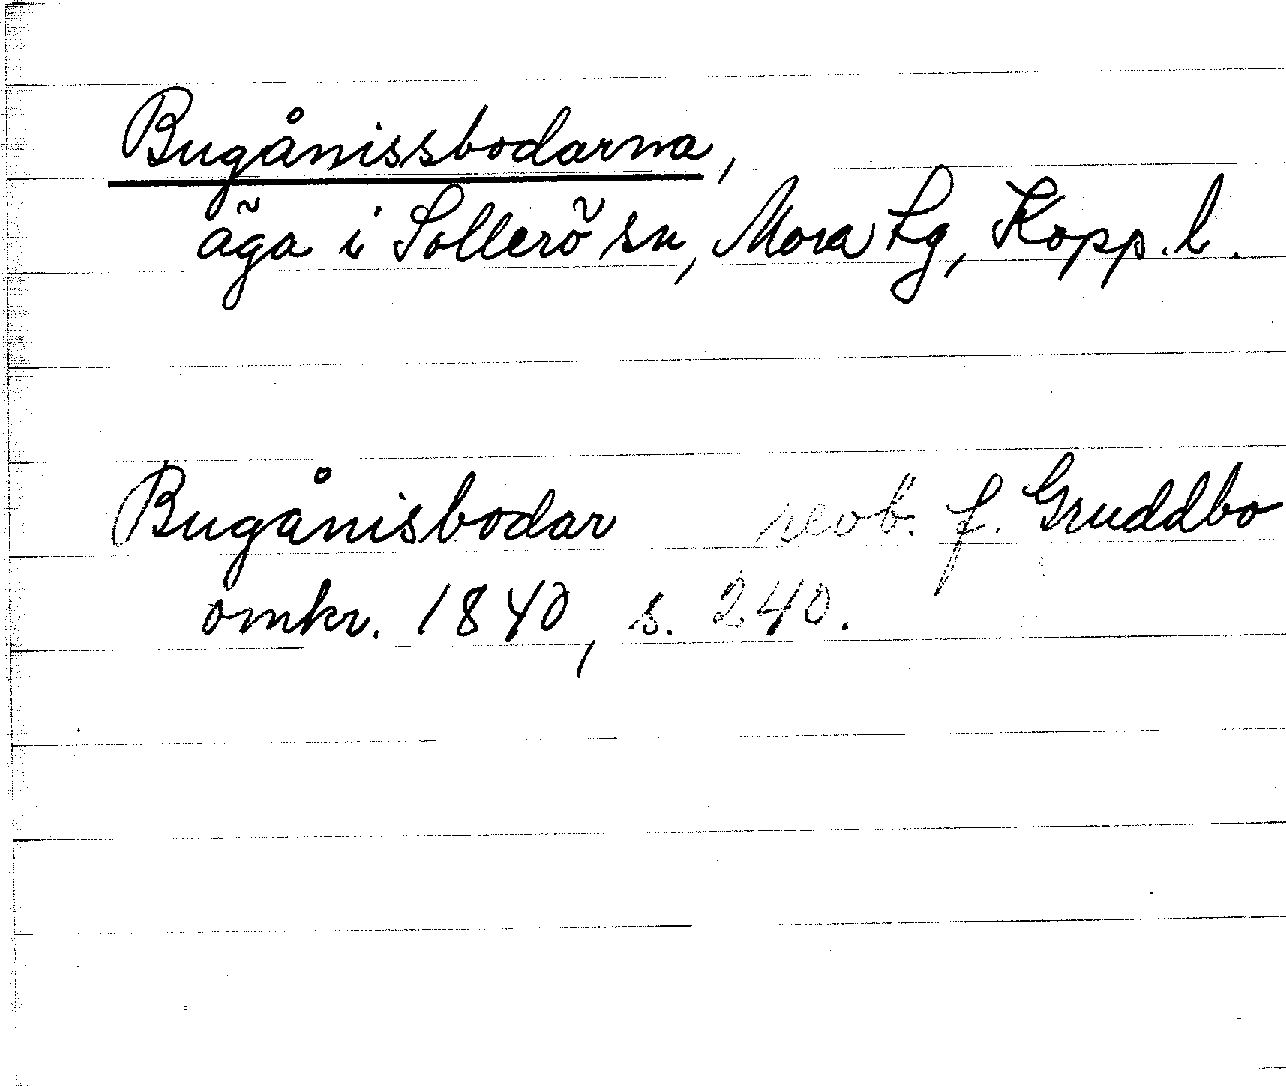 Bugånissbodarna,
äga i Sollerö sn, Mora tg, Kopp. l.
Bugånisbodar revb. f. Gruddbo
omkr. 1840, s. 240.